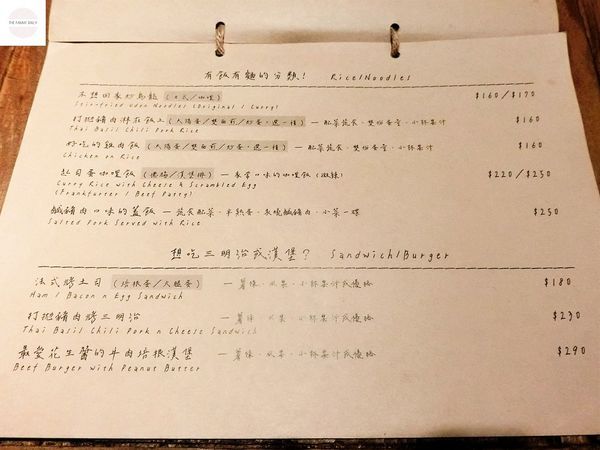 THE FANNY DAILY
有飯有麵的分類! Rice/Noodles
不想回家炒烏龍 (日式/咖哩) $160/$170
Stir-fried Udon Noodles (Original / Curry)
打拋豬肉淋在飯上 (太陽蛋/雙面煎/炒蛋,選一種) — 配菜蔬食、小杯果汁 $160
Thai Basil Chili Pork Rice
好吃的雞肉飯 (太陽蛋/雙面煎/炒蛋,選一種) — 配菜蔬食、小杯果汁 $160
Chicken on Rice
起司蛋咖哩飯 (德腸/漢堡排) — 家常口味的咖哩飯 (微辣) $220/$250
Curry Rice with Cheese & Scrambled Egg
(Frankfurter / Beef Patty)
鹹豬肉口味的蓋飯 — 蔬食配菜、半熟蛋、炙燒鹹豬肉、小菜一碟 $250
Salted Pork Served with Rice
想吃三明治或漢堡? Sandwich/Burger
法式烤土司 (培根蛋/火腿蛋) — 薯條、小杯果汁或優格 $180
Ham / Bacon n Egg Sandwich
打拋豬肉烤三明治 — 薯條、小杯果汁或優格 $230
Thai Basil Chili Pork n Cheese Sandwich
最愛花生醬的牛肉培根漢堡 — 薯條、小杯果汁或優格 $290
Beef Burger with Peanut Butter